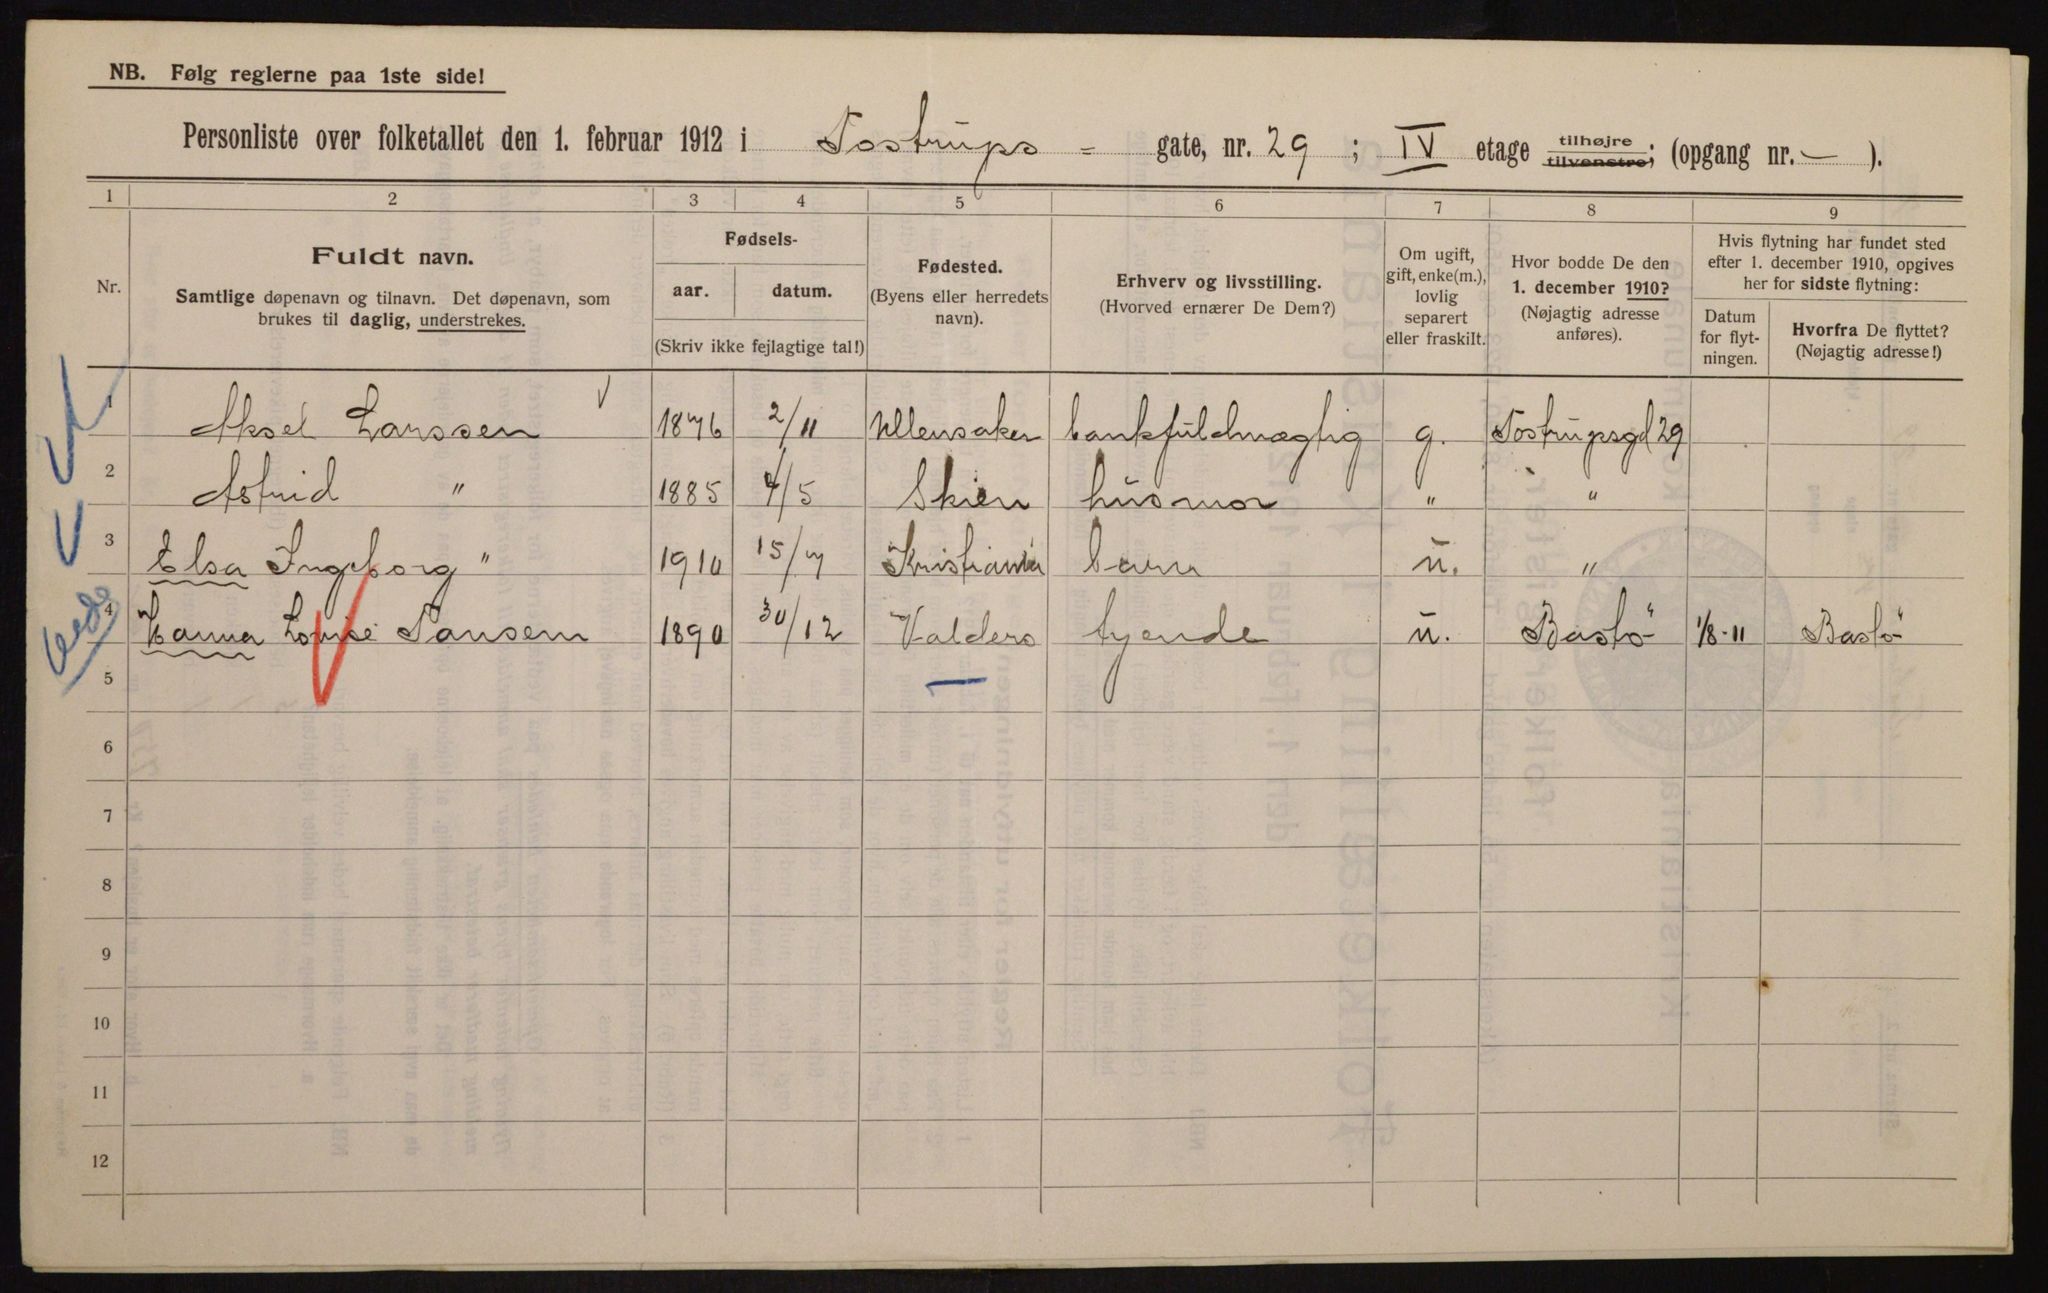 NB. Følg reglerne paa 1ste side!
Personliste over folketallet den 1. februar 1912 i Tostrups - gate, nr. 29 ; IV etage tilhøjre tilvenstre; (opgang nr. — ).
1 2 3 4 5 6 7 8 9
Nr.
Fuldt navn.
Samtlige døpenavn og tilnavn. Det døpenavn, som
brukes til daglig, understrekes.
Fødsels-
aar. datum.
(Skriv ikke fejlagtige tal!)
Fødested.
(Byens eller herredets
navn).
Erhverv og livsstilling.
(Hvorved ernærer De Dem?)
Om ugift,
gift, enke(m.),
lovlig
separert
eller fraskilt.
Hvor bodde De den
1. december 1910?
(Nøjagtig adresse
anføres).
Hvis flytning har fundet sted
efter 1. december 1910, opgives
her for sidste flytning:
Datum
for flyt-
ningen.
Hvorfra De flyttet?
(Nøjagtig adresse!)
1 Aksel Larssen 1876 2/11 Ullensaker bankfuldmægtig g. Tostrupsgd 29
2 Astrid " 1885 4/5 Skien husmor " "
3 Elsa Ingeborg " 1910 15/7 Kristiania barn u. "
4 Hanna Lovise Jansen 1890 30/12 Valders tyende u. Bastö 1/8-11 Bastö
5
6
7
8
9
10
11
12